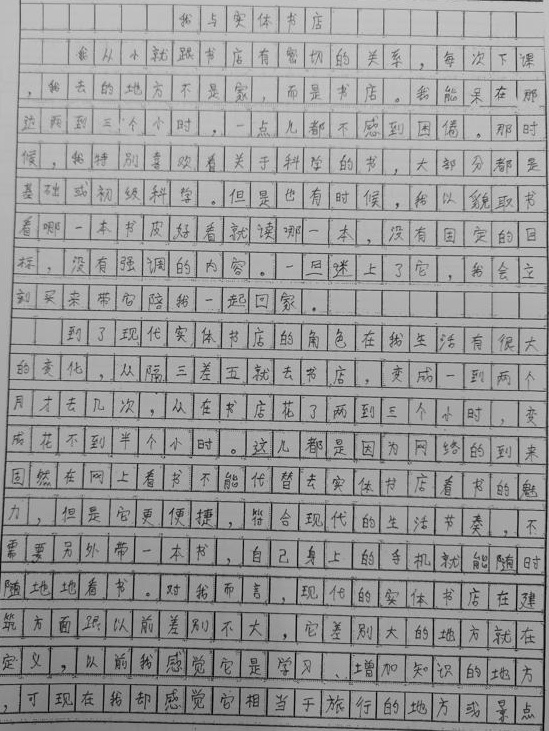 我与实体书店
我从小就跟书店有密切的关系，每次下课
，我去的地方不是家，而是书店。我能呆在那
边两到三个小时，一点儿都不感到困倦。那时
候，我特别喜欢看关于科学的书，大部分都是
基础或初级科学。但是也有时候，我以貌取书
看哪一本书皮好看就读哪一本，没有固定的目
标，没有强调的内容。一旦迷上了它，我会立
刻买来带它陪我一起回家。
到了现代实体书店的角色在我生活有很大
的变化，从隔三差五就去书店，变成一到两个
月才去几次，从在书店花了两到三个小时，变
成花不到半个小时。这儿都是因为网络的到来
固然在网上看书不能代替去实体书店看书的魅
力，但是它更便捷，符合现代的生活节奏，不
需要另外带一本书，自己身上的手机就能随时
随地地看书。对我而言，现代的实体书店在建
筑方面跟以前差别不大，它差别大的地方就在
定义，以前我感觉它是学习、增加知识的地方
，可现在我却感觉它相当于旅行的地方或景点